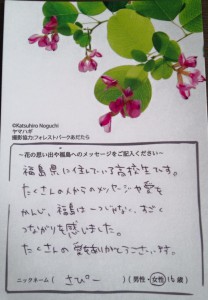 ©Katsuhiro Noguchi
ヤマハギ
撮影協力:フォレストパークあだたら
～花の思い出や福島へのメッセージをご記入ください～
福島県にくましている高校生です。
たくさんの人からのメッセージや愛を
かんじ、福島は一つじゃない、すごく
つながりを感じました。
たくさんの愛をありがとうございます。
ニックネーム( さぴー )(男性・女性 16歳)